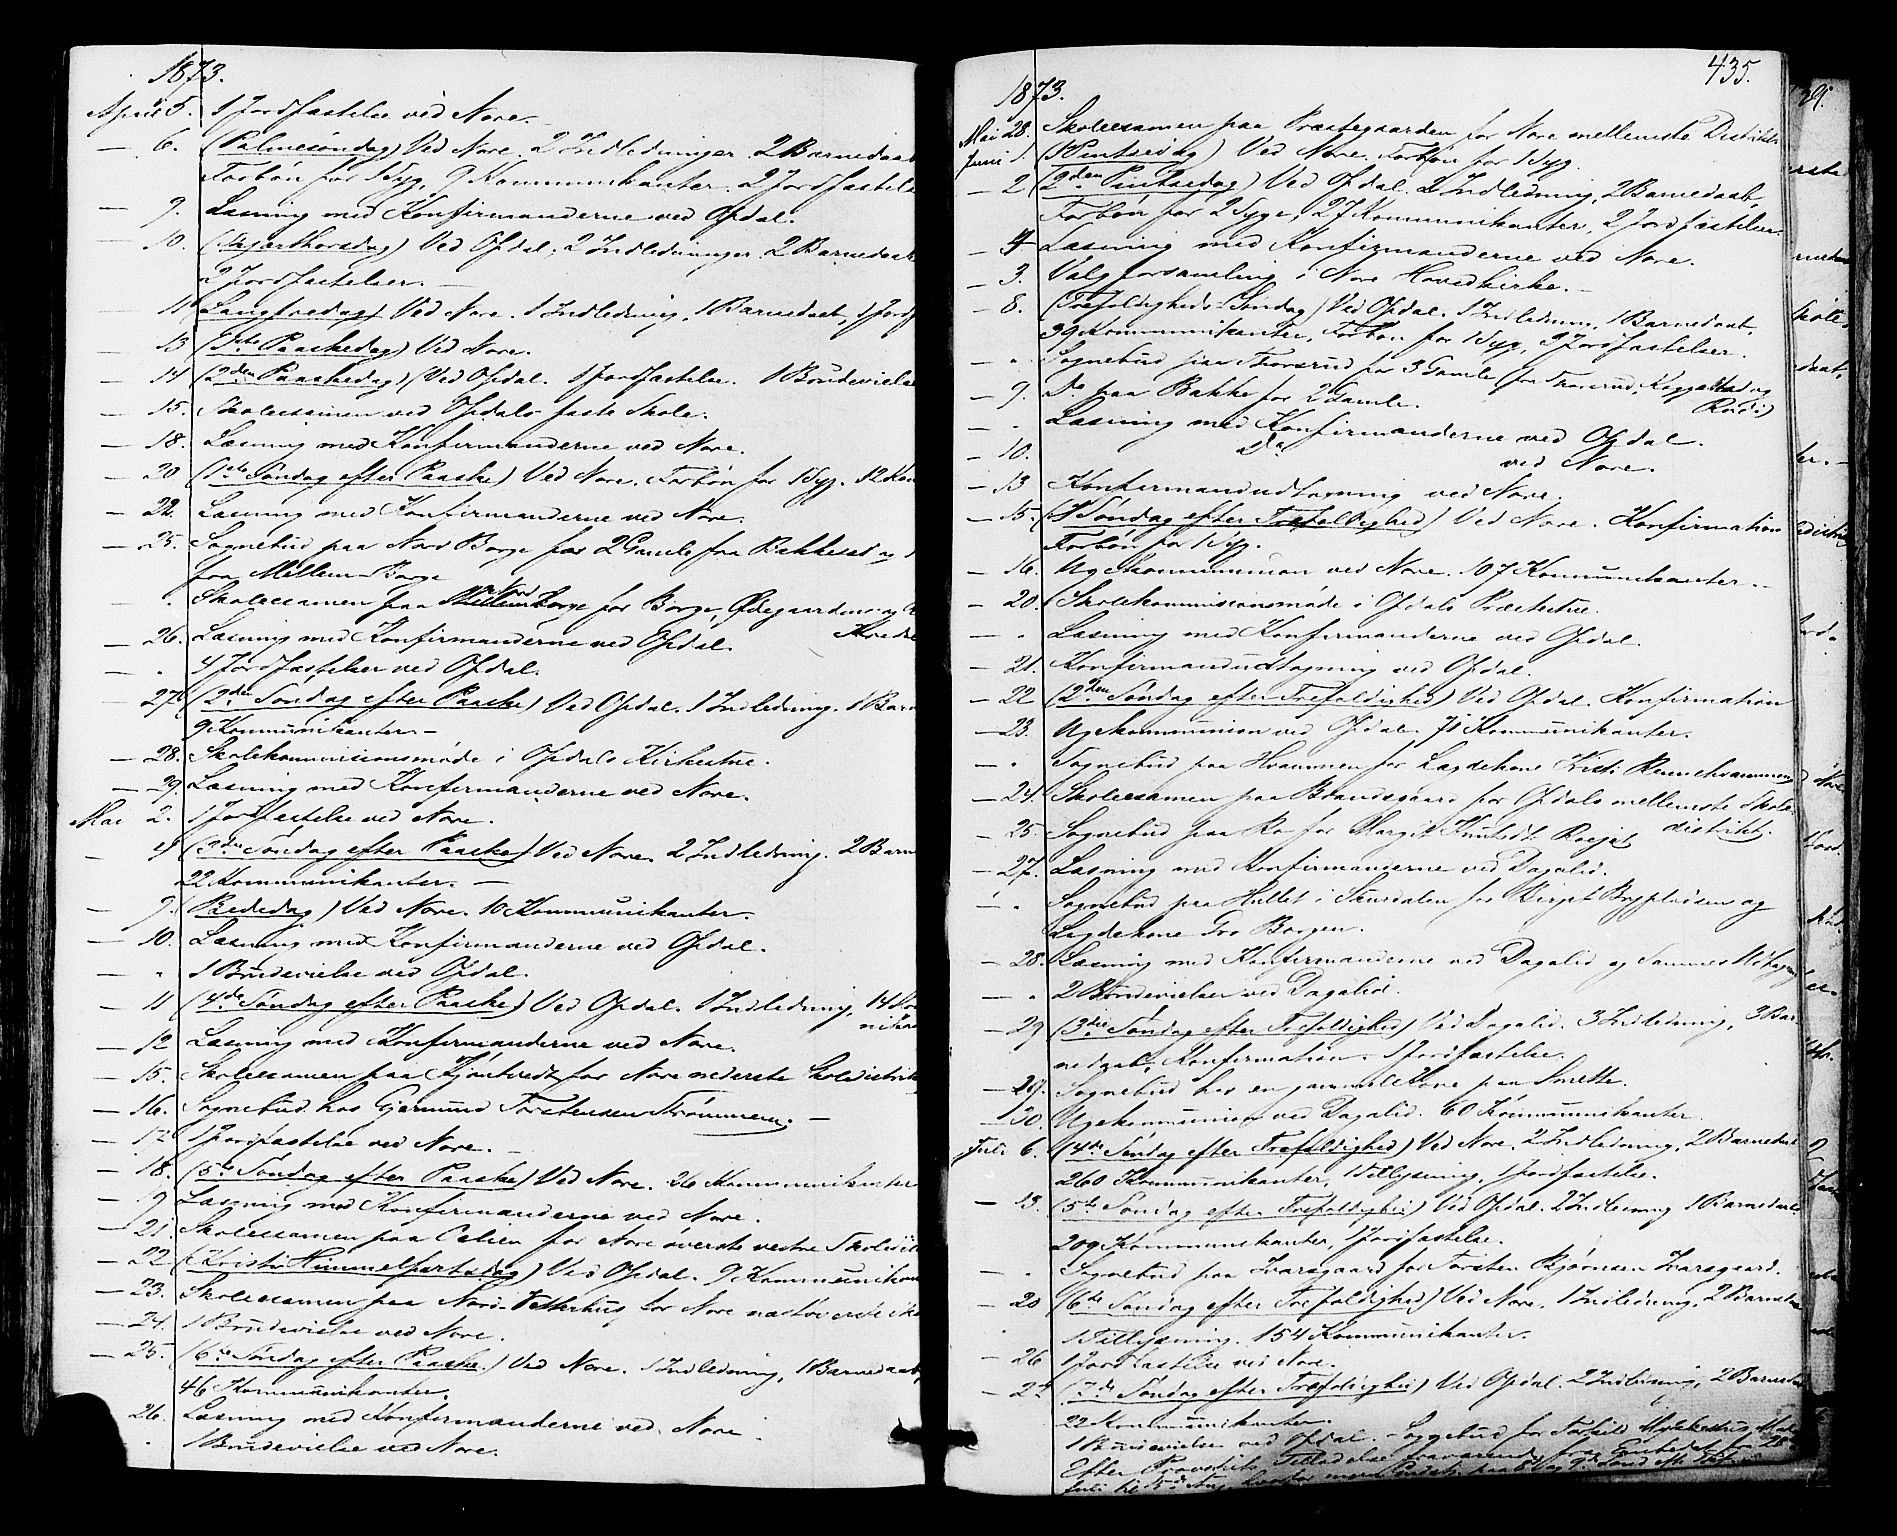 1873.
April 5. 1 Jordfæstelse ved Nore. —
— 6. (Palmesöndag) Ved Nore. 2 Indledninger. 2 Barnedaab
Forbön for 1 Syg, 9 Kommunikanter. 2 Jordfæstelse
— 9. Læsning med Konfirmanderne ved Opdal.
— 10. (Skjærthorsdag) Ved Opdal; 2 Indledninger. 2 Barnedaab
2 Jordfæstelser. —
— 11. Langfredag) Ved Nore. 1 Indledning. 1 Barnedaab, 1 Jordf
— 13 (1ste Paaskedag) Ved Nore.
— 14 (2den Paaskedag) (Ved Opdal. 1 Jordfæstelse. 1 Brudevielse
— 15. Skoleexamen ved Opdals faste Skole.
— 18. Læsning med Konfirmanderne ved Nore.
— 20 (1ste Söndag efter Paaske) Ved Nore. Forbön for 1 Syg. 12 Kom
— 22. Læsning med Konfirmanderne ved Nore.
— 25. Sognebud paa Nord Borge for 2 Gamle fra Bakkeset og
fra Mellem-Borge
— " Skoleexamen paa Nord Borge for Borge, Ødegaardens og
— 26. Læsning med Konfirmanderne ved Opdal.
— " 4 Jordfæstelser ved Opdal.
— 27 (2den Söndag efter Paaske) Ved Opdal. 1 Indledning. 1 Barn
9 Kommunikanter. —
— 28. Skolekommissionsmöde i Opdals Kirkestue.
— 29. Læsning med Konfirmanderne ved Nore.
Mai 2. 1 Jordfæstelse ved Nore.
— 4 (3die Söndag efter Paaske) Ved Nore. 2 Indledning. 2 Barn
22 Kommunikanter. —
— 9. (Bededag) Ved Nore. 10 Kommunikanter.
— 10. Læsning med Konfirmanderne ved Opdal.
— " 1 Brudevielse ved Opdal.
— 11 (4de Söndag efter Paaske) Ved Opdal. 1 Indledning, 14 Kom
— 12 Læsning med Konfirmanderne ved Nore.
— 15. Skoleexamen paa for Nore nederste Skoledistrik
— 16. Sognebud hos Gjermund Torstensen Strömmen. —
— 17 1 Jordfæstelse ved Nore. —
— 18. (5te Söndag efter Paaske) Ved Nore. 26 Kommunikanter
— 19 Læsning med Konfirmanderne ved Nore.
— 21. Skoleexamen paa for Nore överste vestre Skoledis
— 22 (Kristi Himmelfartsdag) Ved Opdal. 9 Kommunikan
— 23. Skoleexamen paa Nord- for Nore
— 24. 1 Brudevielse ved Nore.
— 25. (6te Söndag efter Paaske.) Ved Nore. 1 Indledning, 1 Barnedaab,
46 Kommunikanter.
26. Læsning med Konfirmanderne ved Nore.
" 1 Brudevielse ved Nore.
435.
1873.
Mai 28. Skoleexamen paa Præstegaarden for Nore mellemste Distrikt
Juni 1. (1 Pintsedag) Ved Nore. Forbön for 1 Syg.
— 2 (2den Pintsedag) Ved Opdal. 2 Indledning, 2 Barnedaab,
Forbön for 2 Syge, 27 Kommunikanter, 2 Jordfæstelser.
— 4 Læsning med Konfirmanderne ved Nore.
— 3. Valgforsamling i Nore Hovedkirke. —
— 8. (Trefoldigheds-Söndag) Ved Opdal. 1 Indledning, 1 Barnedaab,
39 Kommunikanter, Forbön for 1 Syg, 3 Jordfæstelser.
— " Sognebud paa Thorsrud for 3 Gamle fra Thorsrud, og
— 9. Do paa Bakke for 2 Gamle.
— " Læsning med Konfirmanderne ved Opdal.
— 10. Do ved Nore.
— 13 Konfirmandudtagning ved Nore.
— 15. (1 Söndag efter Trefoldighed) Ved Nore. Konfirmation
Forbön for 1 Syg.
— 16. Ugekommunion ved Nore. 107 Kommunikanter. —
— 20. (Skolekommissionsmöde i Opdals Præstestue.
— " Læsning med Konfirmanderne ved Opdal.
— 21. Konfirmandudtagning ved Opdal.
— 22 (2den Söndag efter Trefoldighed) Ved Opdal. Konfirmation
— 23. Ugekommunion ved Opdal. 75 Kommunikanter.
— " Sognebud paa Hvammen for Lægdekone Kristi
— 24. Skoleexamen paa Brandsgaard for Opdals mellemste Skole-
distrikt.
— 25. Sognebud paa for Margit Knutsdt
— 27. Læsning med Konfirmanderne ved Dagalid.
— " Sognebud paa Hullet i Skurdalen for Birgit og
Lægdekone Gro Borgen.
— 28. Læsning med Konfirmanderne ved Dagalid og Sammes Udtagning
— " 2 Brudevielser ved Dagalid.
— 29 (3die Söndag efter Trefoldighed) Ved Dagalid. 3 Indledning, 3 Bar-
nedaab, Konfirmation. 1 Jordfæstelse.
— 29. Sognebud hos en gammel Kone paa
— 30. Ugekommunion ved Dagalid. 60 Kommunikanter.
Juli 6. (4de Söndag efter Trefoldighed) Ved Nore. 2 Indledning, 2 Barnedaab
260 Kommunikanter, 1 Tillysning, 1 Jordfæstelse.
— 13. (5te Söndag efter Trefoldighed) Ved Opdal. 2 Indledning 1 Barnedaab.
209 Kommunikanter, 1 Jordfæstelse.
— " Sognebud paa Larsgaard for Torsten Bjørnsen Larsgaard.
— 20 (6te Söndag efter Trefoldighed) Ved Nore. 1 Indledning, 2 Barneda
1 Tillysning. 154 Kommunikanter.
— 26 1 Jordfæstelse ved Nore.
— 27 (7de Söndag efter Trefoldighed) Ved Opdal. 2 Indledning, 2 Barneda
22 Kommunikanter.
1 Brudevielse ved Opdal. — Sognebud for
Efter Provstens Tilladelse fraværende fra Embedet fra 28de
Juli til